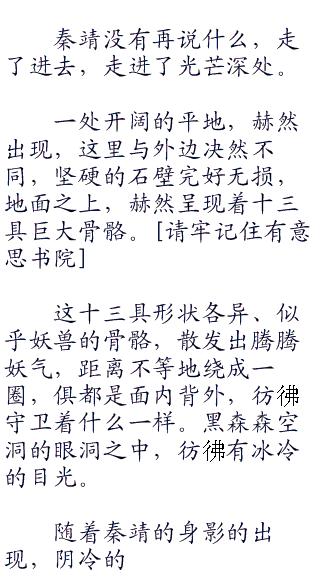 秦靖没有再说什么，走
了进去，走进了光芒深处。
一处开阔的平地，赫然
出现，这里与外边决然不
同，坚硬的石壁完好无损，
地面之上，赫然呈现着十三
具巨大骨骼。[请牢记住有意
思书院]
这十三具形状各异、似
乎妖兽的骨骼，散发出腾腾
妖气，距离不等地绕成一
圈，俱都是面内背外，彷彿
守卫着什么一样。黑森森空
洞的眼洞之中，彷彿有冰冷
的目光。
随着秦靖的身影的出
现，阴冷的